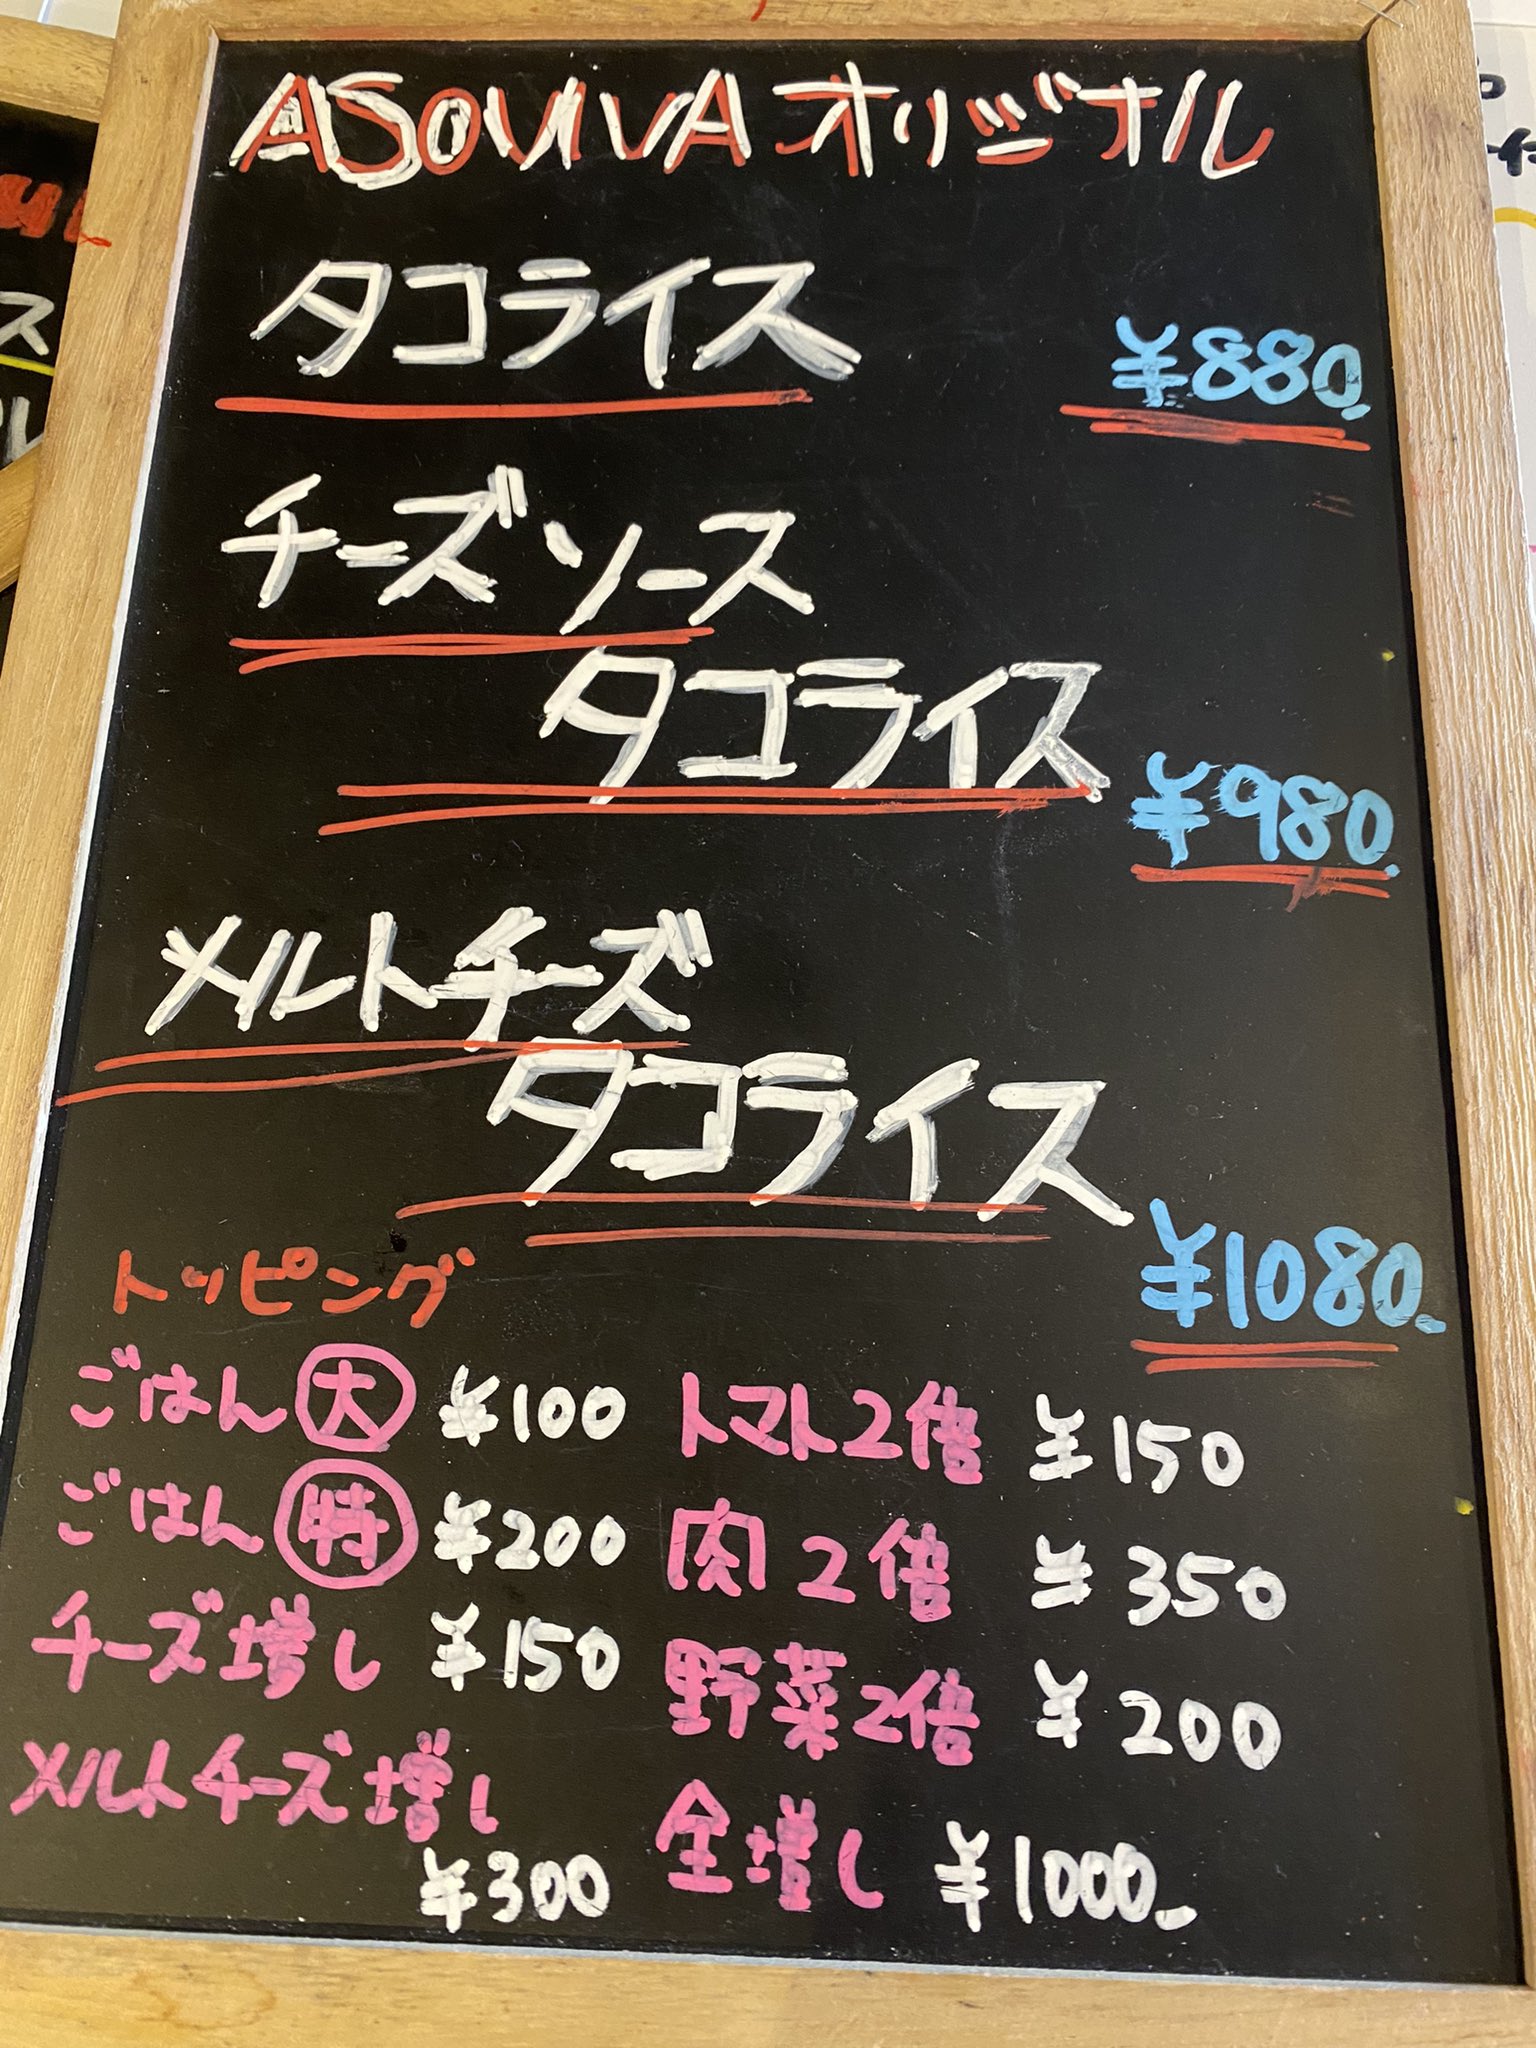 ASOVIVAオリジナル
タコライス
¥880.
チーズソース
タコライス
¥980.
メルトチーズ
タコライス
¥1080.
トッピング
ごはん大 ¥100
ごはん特 ¥200
チーズ増し ¥150
メルトチーズ増し
¥300
トマト2倍 ¥150
肉2倍 ¥350
野菜2倍 ¥200
全増し ¥1000.